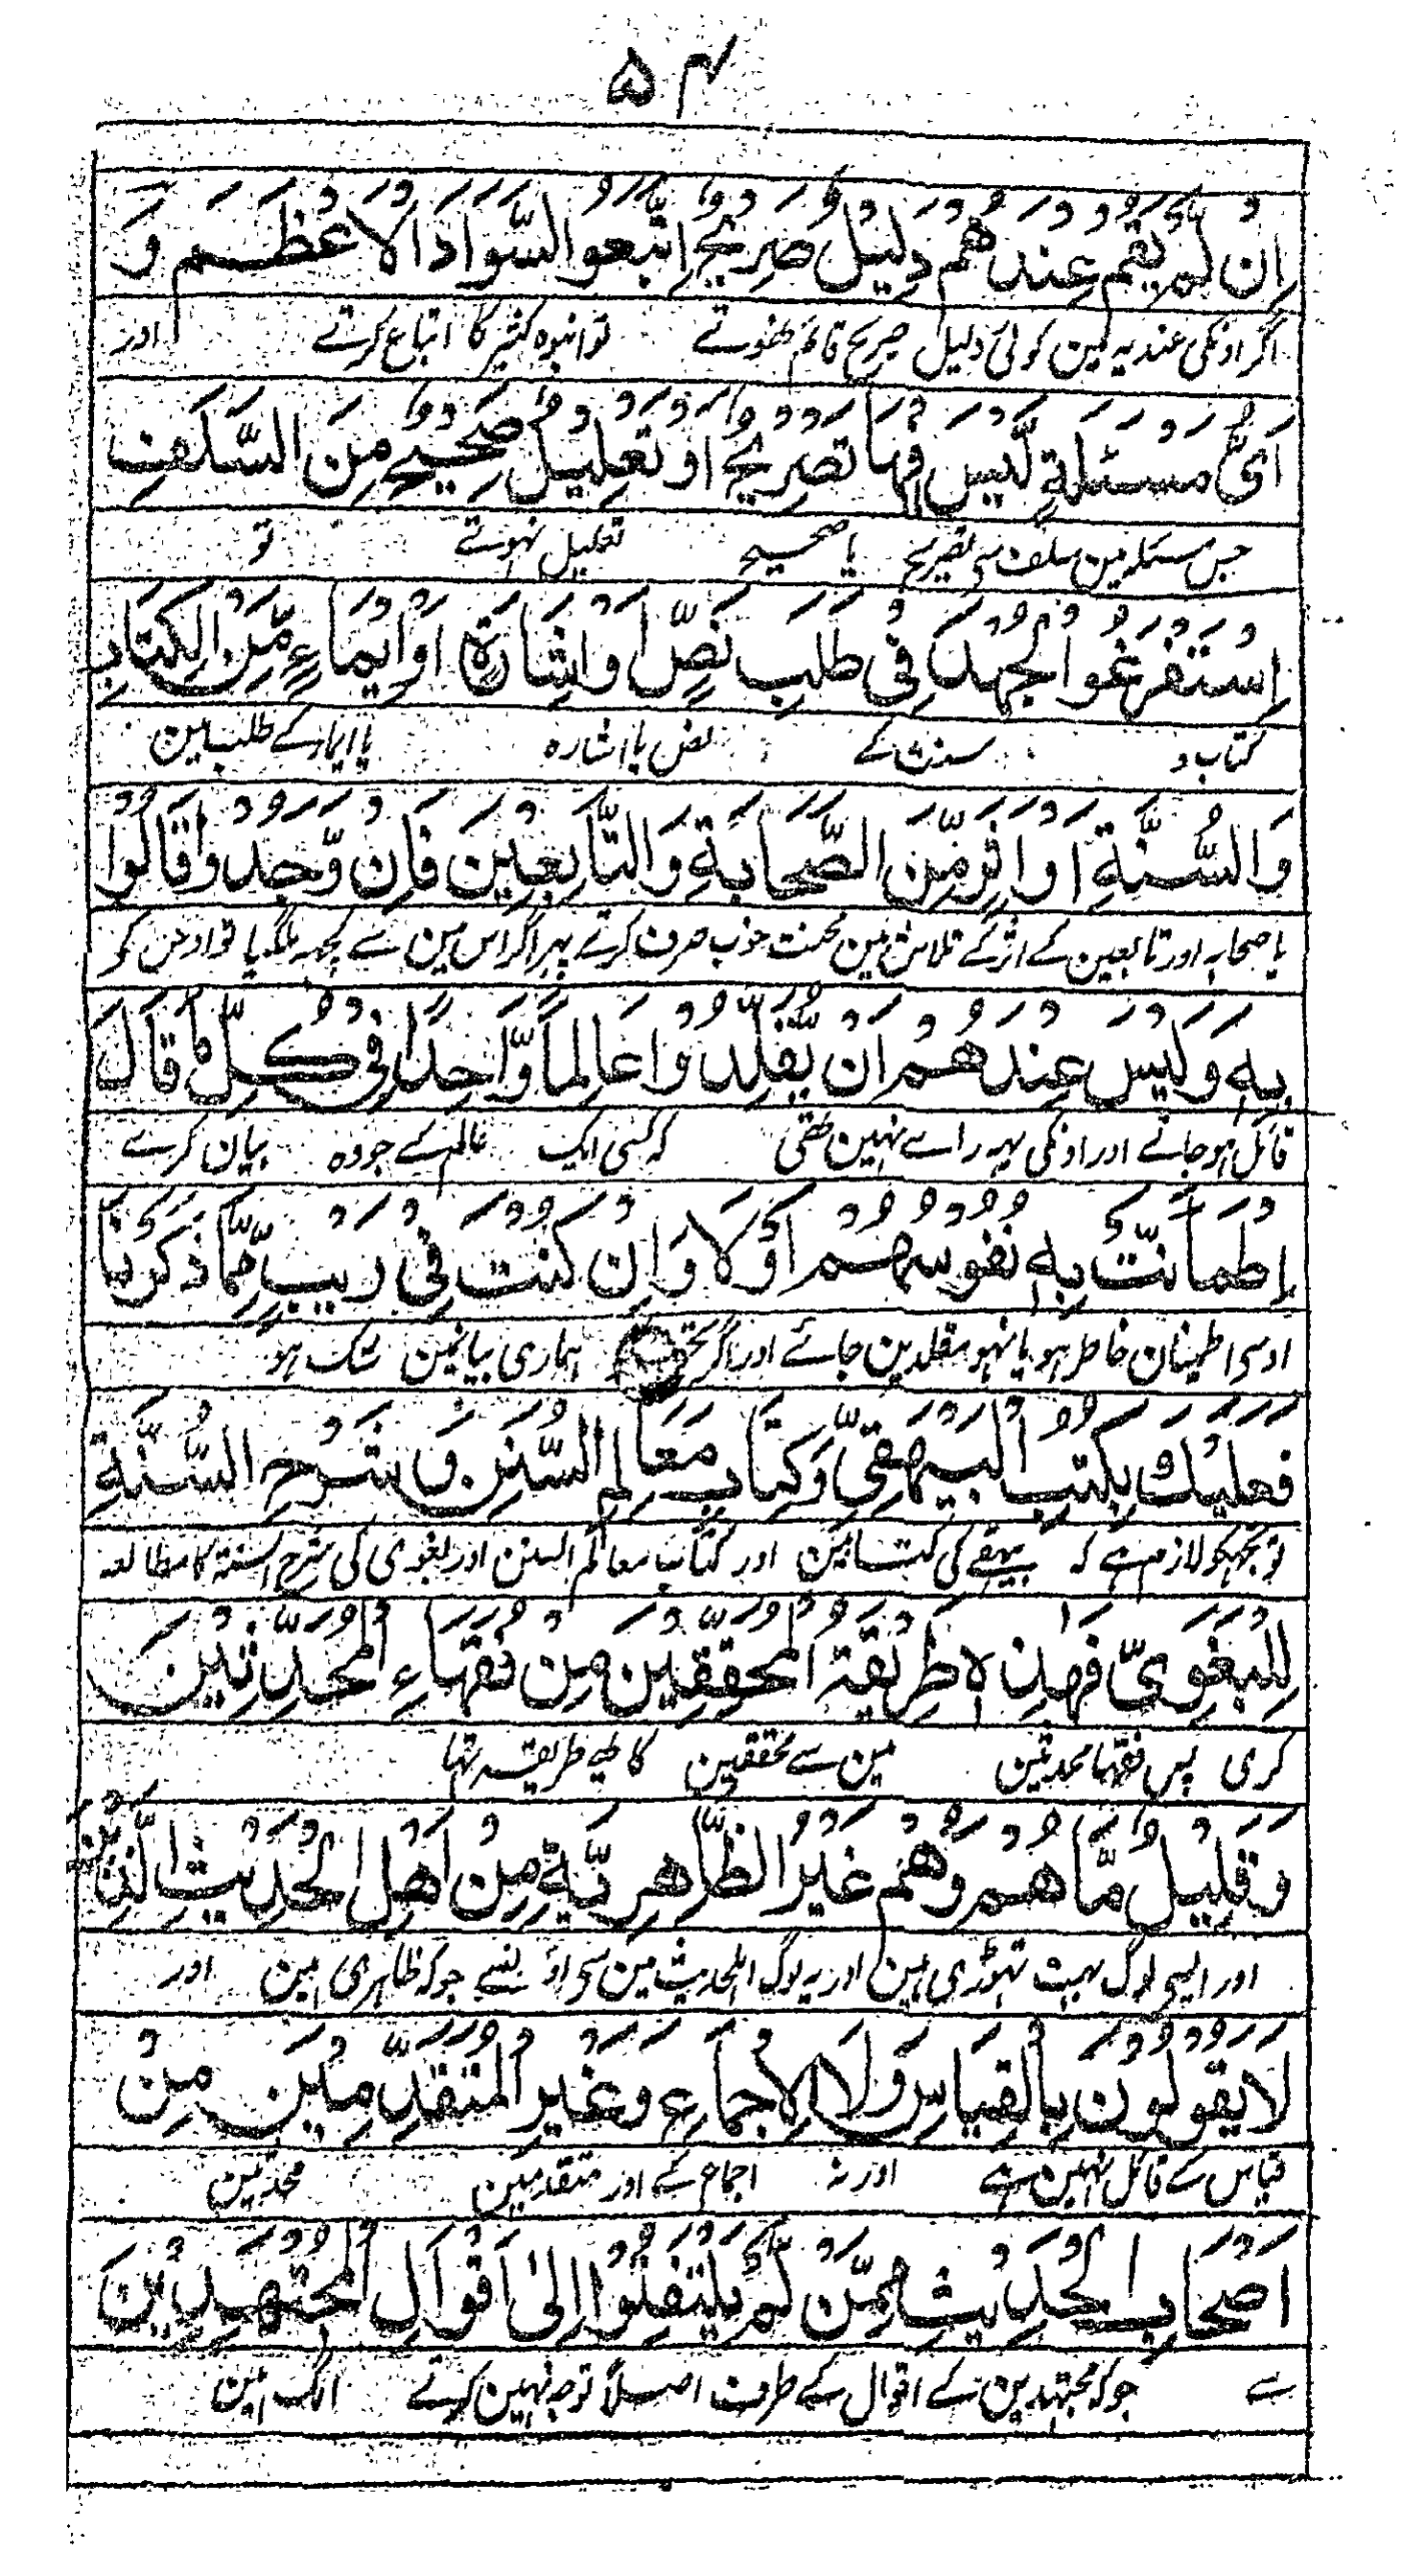 ۵۴
اِنْ لَمْ يَقُمْ عِنْدَهُمْ دَلِيْلٌ صَرِيْحٌ اِتَّبَعُوا السَّوَادَ الْاَعْظَمَ وَ
اگر اونکی عندیہ مین کوئی دلیل صریح قائم نہوتے توانبوہ کثیر کا اتباع کرتے اور
اَيُّ مَسْئَلَةٍ لَّيْسَ فِيْهَا تَصْرِيْحٌ اَوْ تَعْلِيْلٌ صَحِيْحٌ مِنَ السَّلَفِ
جس مسئلہ مین سلف سی تصریح یا صحیح تعلیل نہوتے تو
اِسْتَفْرَغُوا الْجُهْدَ فِيْ طَلَبِ نَصٍّ اَوْ اِشَارَةٍ اَوْ اِيْمَاءٍ مِّنَ الْكِتَابِ
کتاب و سنت کے نص یا اشارہ یا ایماء کے طلب مین
وَالسُّنَّةِ اَوْ اَثَرٍ مِّنَ الصَّحَابَةِ وَالتَّابِعِيْنَ فَاِنْ وَّجَدُوْا قَالُوْا
یا صحابہ اور تابعین کے اثر کے تلاش مین محنت خوب صرف کرتے پہر اگر اس مین سے کچہہ ملگیا تو اوس کو
بِهٖ وَلَيْسَ عِنْدَهُمْ اَنْ يُّقَلِّدُوْا عَالِمًا وَّاحِدًا فِيْ كُلِّ مَا قَالَ
قائل ہو جاتے اور اونکی یہہ راے نہین تھی کہ کسی ایک عالم کے جو وہ بیان کرے
اِطْمَأَنَّتْ بِهٖ نُفُوْسُهُمْ اَوْلَا وَاِنْ كُنْتَ فِيْ رَيْبٍ مِّمَّا ذَكَرْنَا
اوسی اطمینان خاطر ہو یا نہو مقلد بن جائے اور اگر ہماری بیانمین شک ہو
فَعَلَيْكَ بِكُتُبِ الْبَيْهَقِيِّ وَكِتَابِ مَعَالِمِ السُّنَنِ وَ شَرْحِ السُّنَّةِ
تو تجہکو لازم ہے کہ بیہقے کی کتابین اور کتاب معالم السنن اور بغوی کی شرح السنة کا مطالعہ
لِلْبَغَوِيِّ فَهٰذِهٖ طَرِيْقَةُ الْمُحَقِّقِيْنَ مِنْ فُقَهَاءِ الْمُحَدِّثِيْنَ
کری پس فقہا محدثین مین سے محققین کا یہ طریقہ تہا
وَقَلِيْلٌ مَّا هُمْ وَهُمْ غَيْرُ الظَّاهِرِيَّةِ مِنْ اَهْلِ الْحَدِيْثِ الَّذِيْنَ
اور ایسی لوگ بہت تہوڑی ہین اور یہ لوگ اہلحدیث مین سی اونسے جو کہ ظاہری ہین اور
لَا يَقُوْلُوْنَ بِالْقِيَاسِ وَلَا الْاِجْمَاعِ وَغَيْرُ الْمُتَقَدِّمِيْنَ مِنْ
قیاس کے قائل نہین ہے اور نہ اجماع کے اور متقدمین محدثین
اَصْحَابِ الْحَدِيْثِ مِمَّنْ لَمْ يَلْتَفِتُوْا اِلٰى اَقْوَالِ الْمُجْتَهِدِيْنَ
سے جو کہ مجتہدین کے اقوال کے طرف اصلاً توجہ نہین کرتے الگ ہین